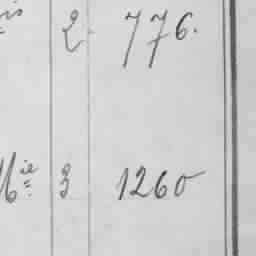 is 2. 776.
Mie 3 1260